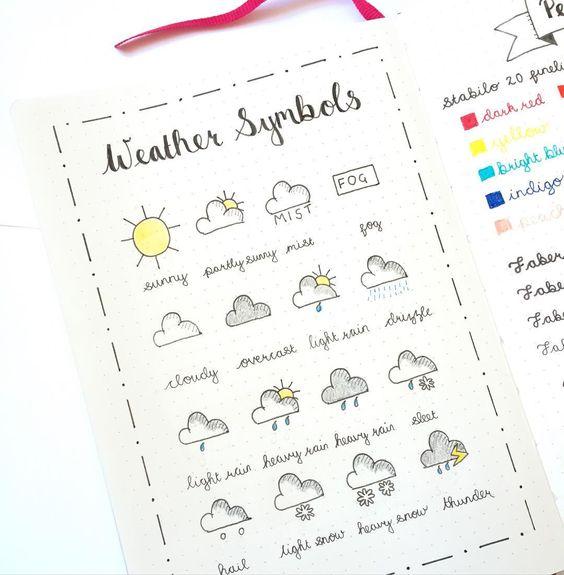 Weather Symbols
MIST
FOG
sunny partly sunny mist fog
cloudy overcast light rain drizzle
light rain heavy rain heavy rain sleet
hail light snow heavy snow thunder
Pe
Stabilo 20 fineli
dark red
yellow
bright blu
indigo
peach
Faber
Faber
Faber
Fab